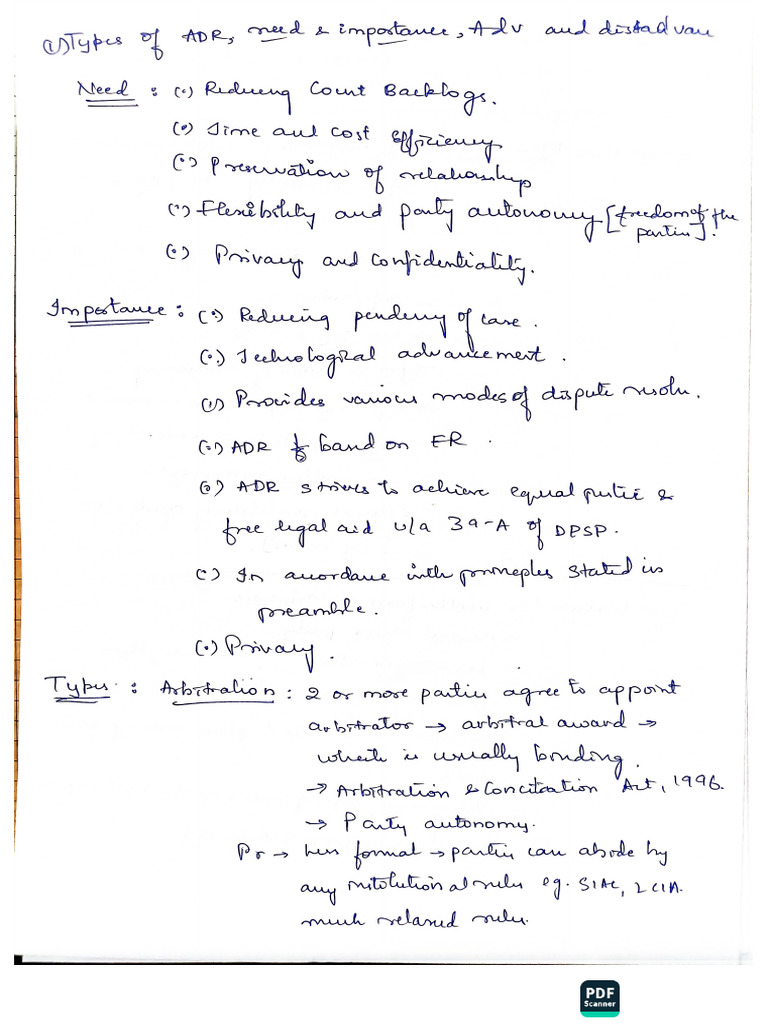 (1) Types of ADR, need & importance, Adv and disadvan
Need : (•) Reducing Court Backlogs.
(•) Time and cost efficiency
(•) Preservation of relationship
(•) Flexibility and party autonomy [freedom of the
parties].
(•) Privacy and confidentiality.
Importance : (•) Reducing pendency of case.
(•) Technological advancement.
(•) Provides various modes of dispute resolu.
(•) ADR is based on ER.
(•) ADR strives to achieve equal justice &
free legal aid u/a 39-A of DPSP.
(•) In accordance with principles stated in
preamble.
(•) Privacy.
Types : Arbitration : 2 or more parties agree to appoint
arbitrator → arbitral award →
which is usually binding.
→ Arbitration & Conciliation Act, 1996.
→ Party autonomy.
Pr → less formal → parties can abide by
any institutional rules eg. SIAC, LCIA.
much relaxed rules.
PDF
Scanner